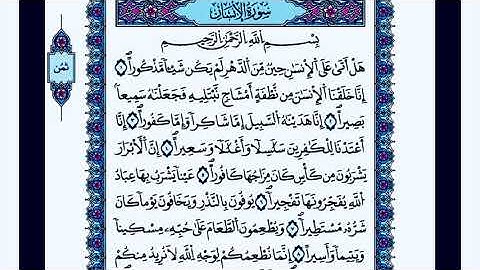 سُورَةُ الْإِنسَانِ
بِسْمِ اللَّهِ الرَّحْمَٰنِ الرَّحِيمِ
هَلْ أَتَىٰ عَلَى الْإِنسَانِ حِينٌ مِّنَ الدَّهْرِ لَمْ يَكُن شَيْئًا مَّذْكُورًا ١
إِنَّا خَلَقْنَا الْإِنسَانَ مِن نُّطْفَةٍ أَمْشَاجٍ نَّبْتَلِيهِ فَجَعَلْنَاهُ سَمِيعًا
بَصِيرًا ٢ إِنَّا هَدَيْنَاهُ السَّبِيلَ إِمَّا شَاكِرًا وَإِمَّا كَفُورًا ٣ إِنَّا
أَعْتَدْنَا لِلْكَافِرِينَ سَلَاسِلًا وَأَغْلَالًا وَسَعِيرًا ٤ إِنَّ الْأَبْرَارَ
يَشْرَبُونَ مِن كَأْسٍ كَانَ مِزَاجُهَا كَافُورًا ٥ عَيْنًا يَشْرَبُ بِهَا عِبَادُ
اللَّهِ يُفَجِّرُونَهَا تَفْجِيرًا ٦ يُوفُونَ بِالنَّذْرِ وَيَخَافُونَ يَوْمًا كَانَ
شَرُّهُ مُسْتَطِيرًا ٧ وَيُطْعِمُونَ الطَّعَامَ عَلَىٰ حُبِّهِ مِسْكِينًا
وَيَتِيمًا وَأَسِيرًا ٨ إِنَّمَا نُطْعِمُكُمْ لِوَجْهِ اللَّهِ لَا نُرِيدُ مِنكُمْ
ثمن